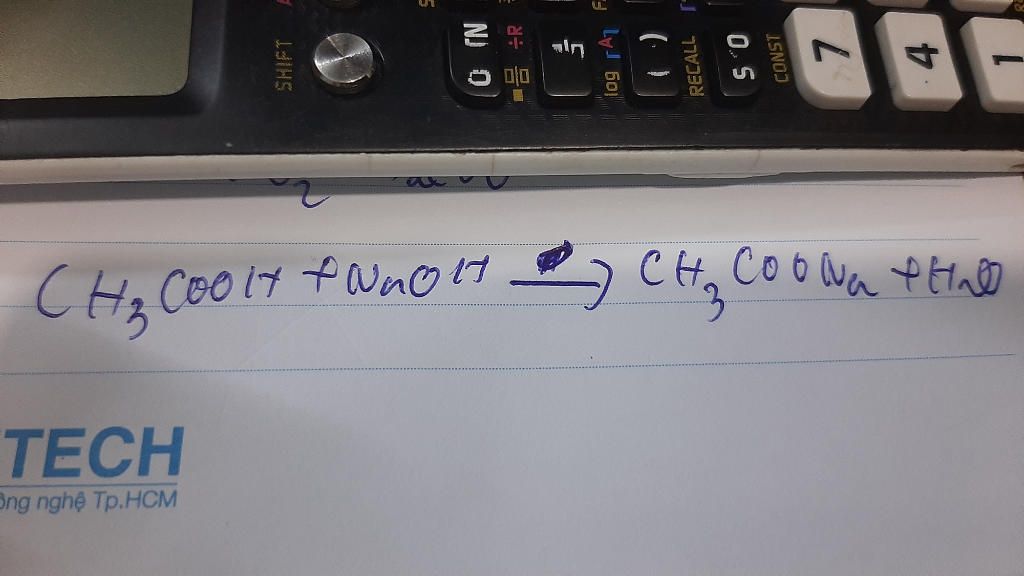 SHIFT
÷R
log
RECALL
CONST
7
4
1
CH₃COOH + NaOH → CH₃COONa + H₂O
TECH
ông nghệ Tp.HCM